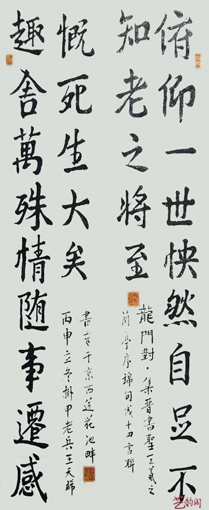 俯仰一世怏然自足不
知老之將至
龍門對·集晉書聖王羲之
蘭亭序錦句成十四言聯
趣舍萬殊情随事遷感
慨死生大矣
書于京西莲花池畔
丙申立冬卸甲老兵王天